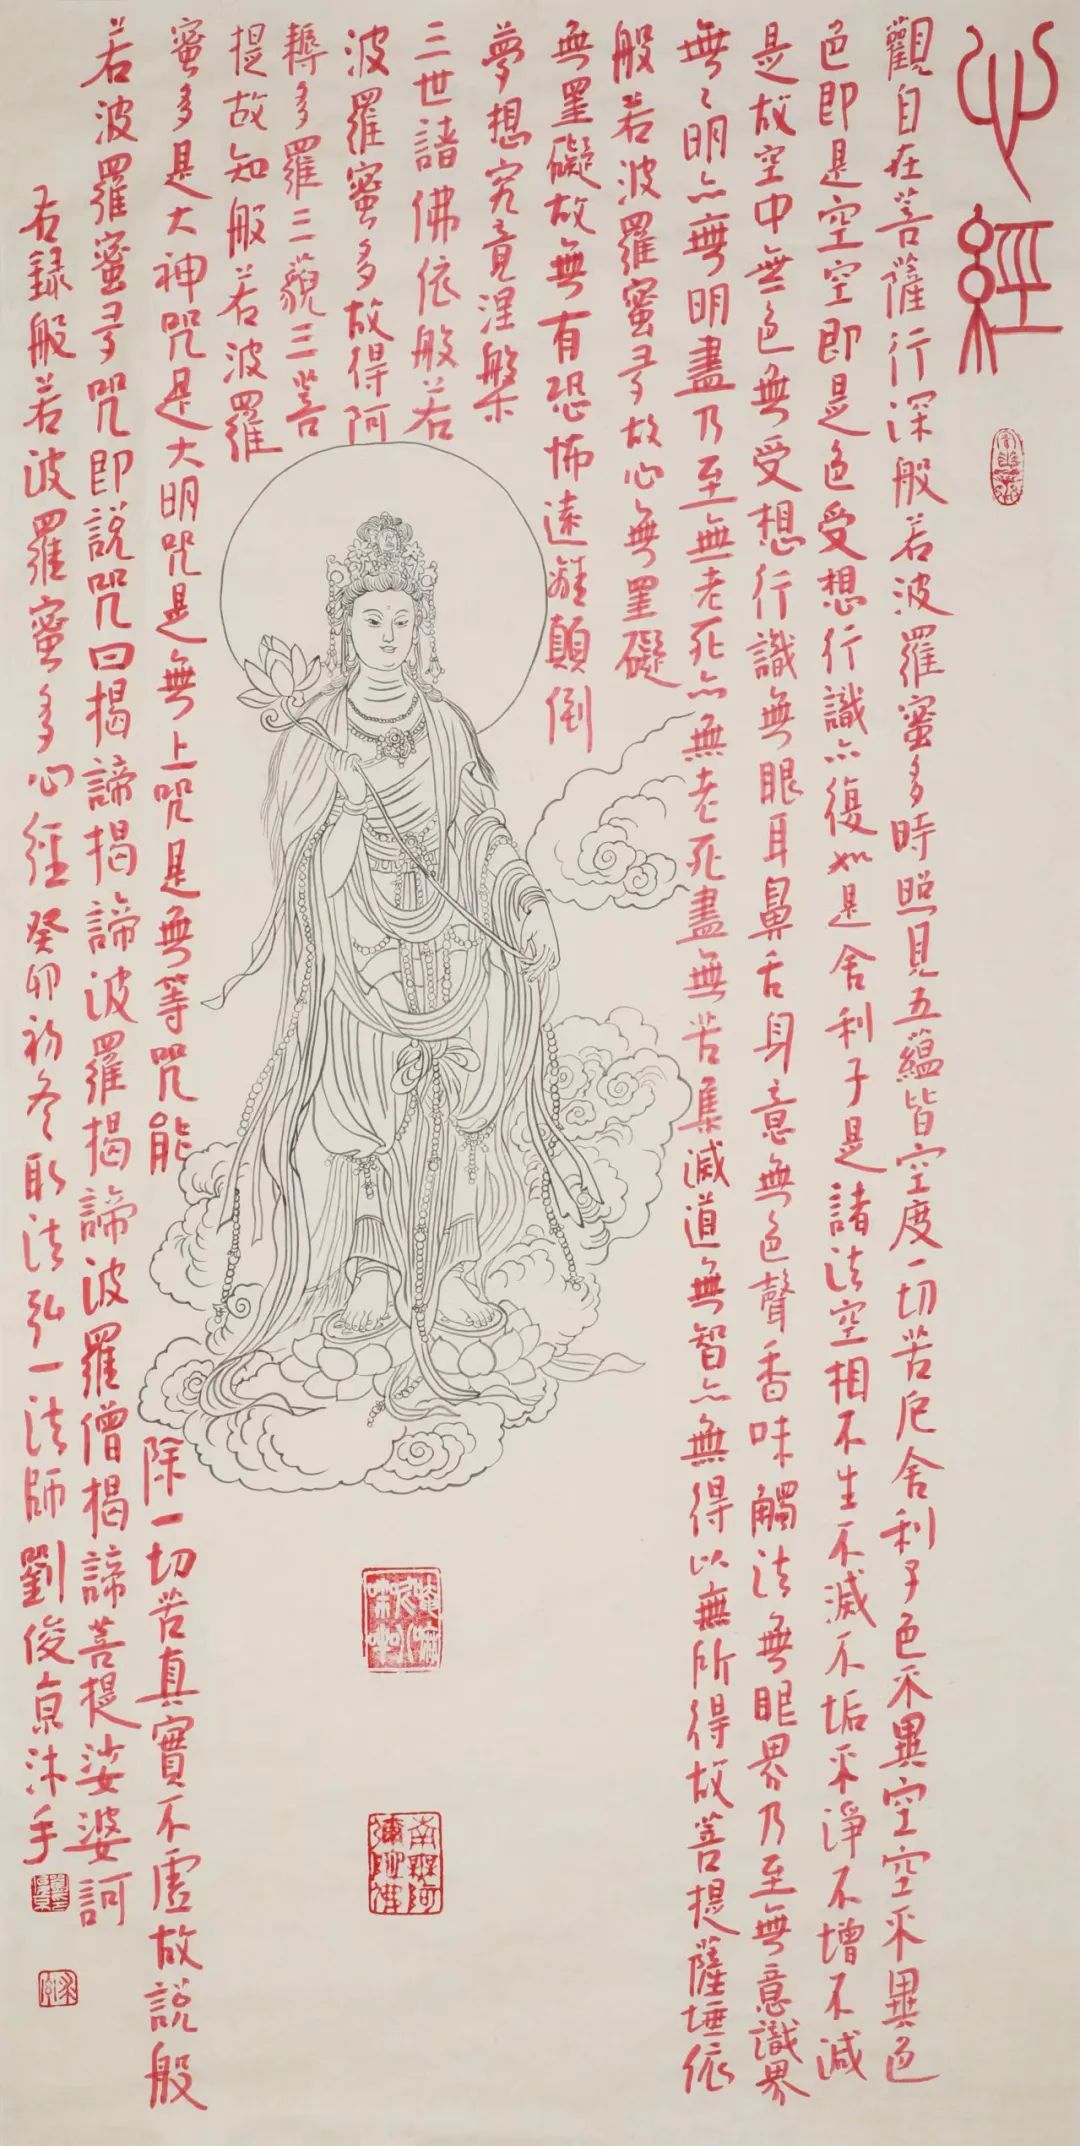 心經
觀自在菩薩行深般若波羅蜜多時照見五蘊皆空度一切苦厄舍利子色不異空空不異色
色即是空空即是色受想行識亦復如是舍利子是諸法空相不生不滅不垢不淨不增不減
是故空中無色無受想行識無眼耳鼻舌身意無色聲香味觸法無眼界乃至無意識界
無〻明亦無明盡乃至無老死亦無老死盡無苦集滅道無智亦無得以無所得故菩提薩埵依
般若波羅蜜多故心無罣礙
無罣礙故無有恐怖遠離顛倒
夢想究竟涅槃
三世諸佛依般若
波羅蜜多故得阿
耨多羅三藐三菩
提故知般若波羅
蜜多是大神咒是大明咒是無上咒是無等咒能除一切苦真實不虛故說般
若波羅蜜多咒即說咒曰揭諦揭諦波羅揭諦波羅僧揭諦菩提娑婆訶
右錄般若波羅蜜多心經癸卯初冬取法弘一法師劉俊京沐手
南無阿
彌陀佛